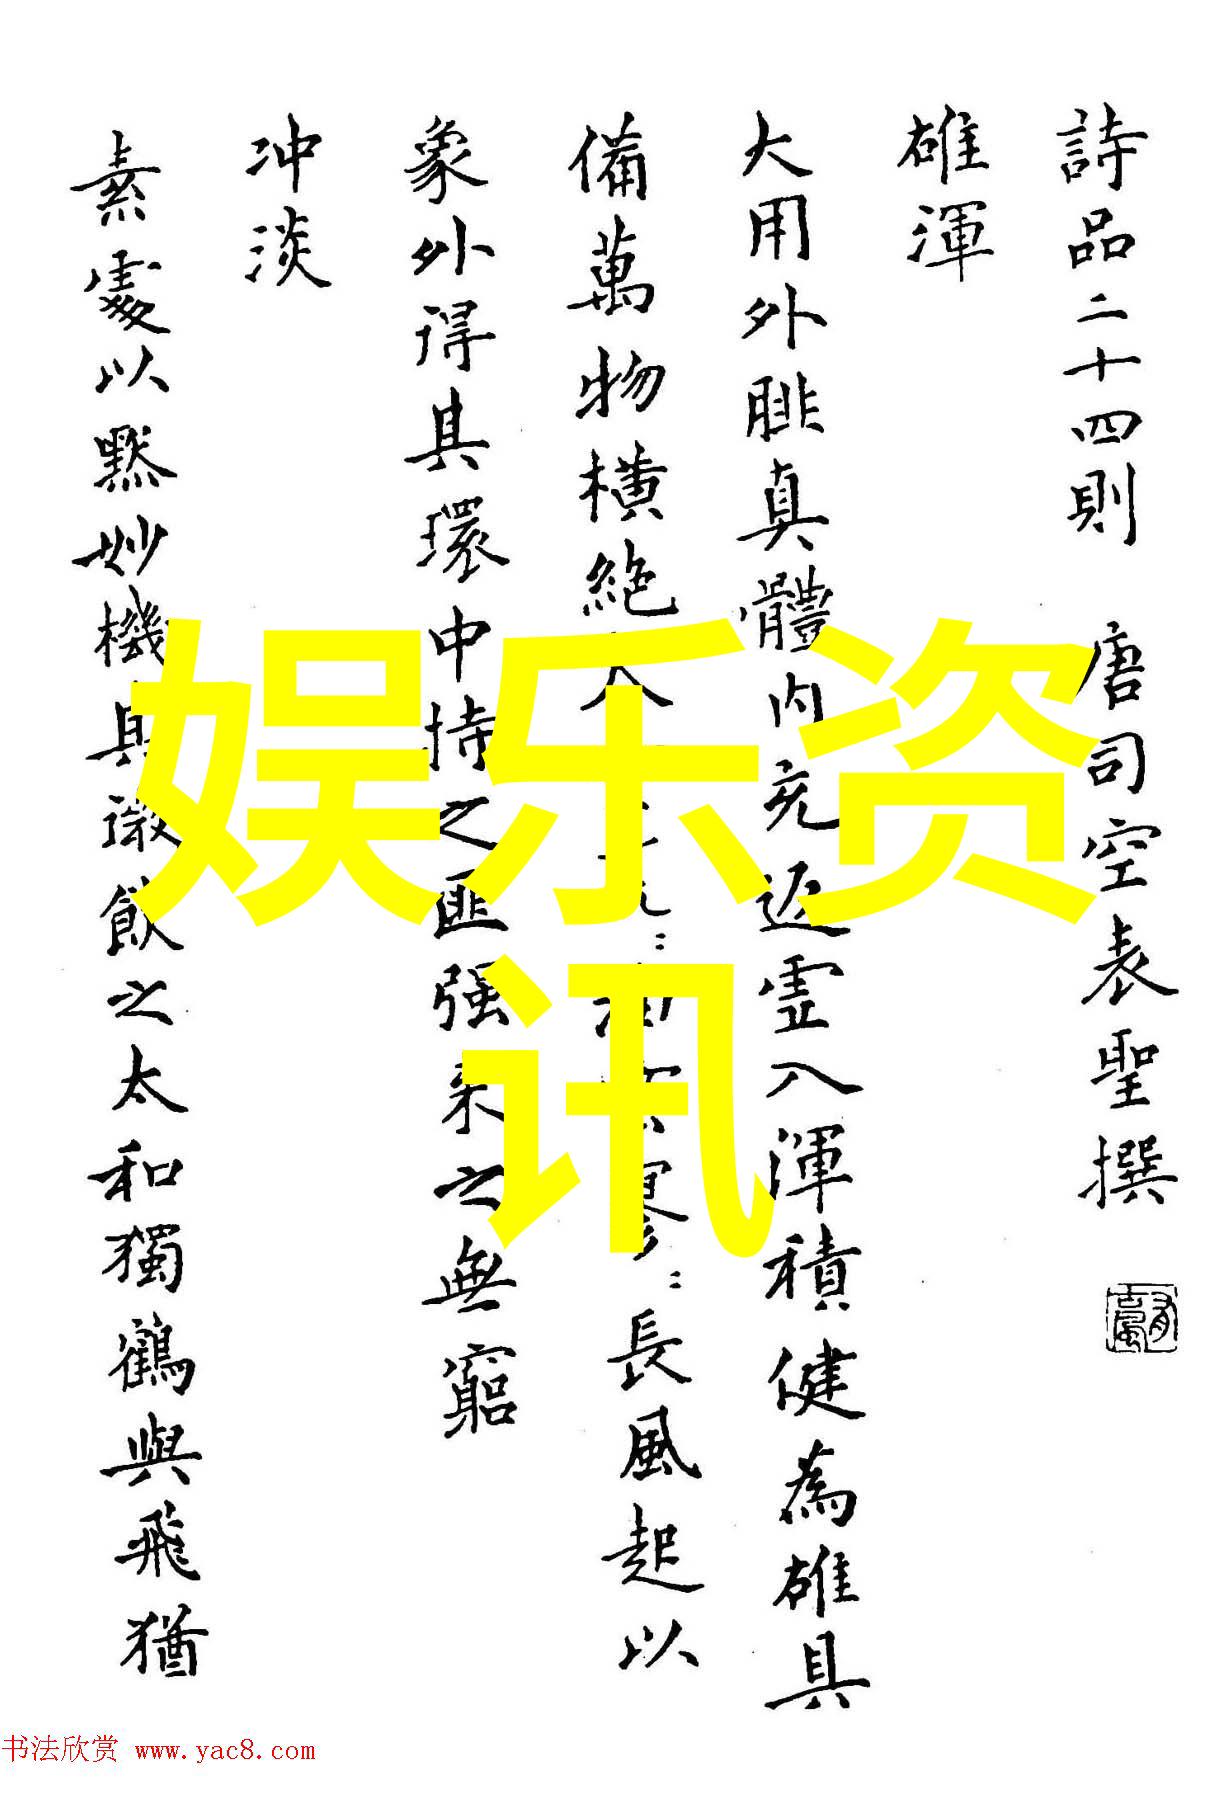 詩品二十四則 唐司空表聖撰
雄渾
大用外腓真體内充返虛入渾積健為雄具
備萬物橫絶 寥〻長風起以
象外得其環中持之匪强来之無窮
冲淡
素處以黙妙機其微飲之太和獨鶴與飛猶
娱乐资
讯
书法欣赏 www.yac8.com